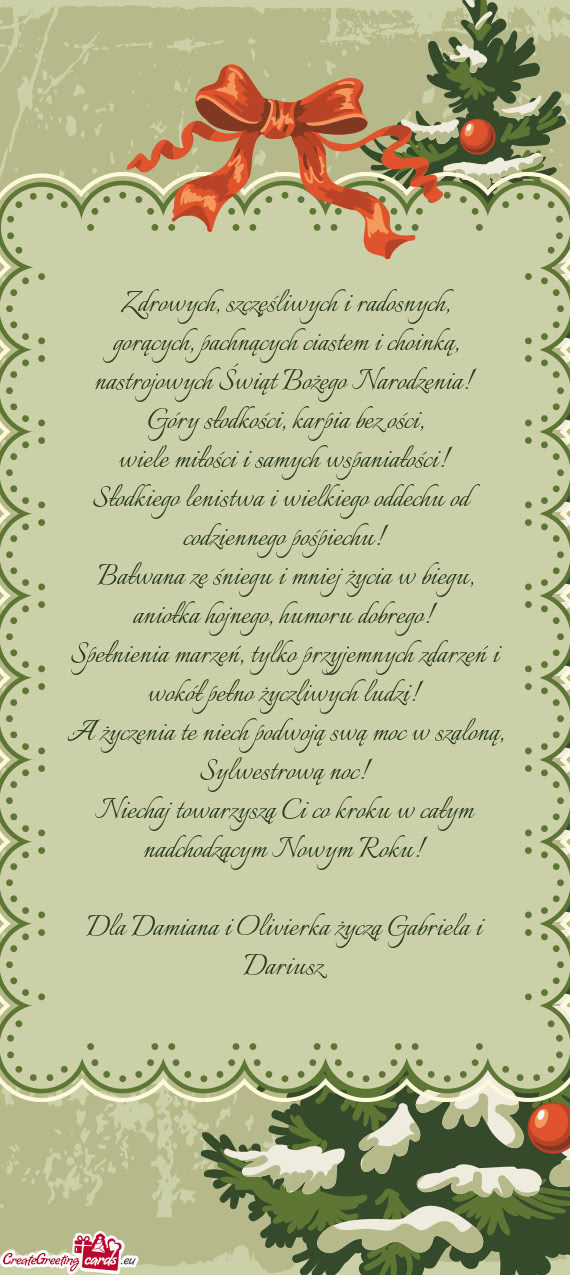 Zdrowych, szczęśliwych i radosnych,
gorących, pachnących ciastem i choinką,
nastrojowych Świąt Bożego Narodzenia!
Góry słodkości, karpia bez ości,
wiele miłości i samych wspaniałości!
Słodkiego lenistwa i wielkiego oddechu od
codziennego pośpiechu!
Bałwana ze śniegu i mniej życia w biegu,
aniołka hojnego, humoru dobrego!
Spełnienia marzeń, tylko przyjemnych zdarzeń i
wokół pełno życzliwych ludzi!
A życzenia te niech podwoją swą moc w szaloną,
Sylwestrową noc!
Niechaj towarzyszą Ci co kroku w całym
nadchodzącym Nowym Roku!
Dla Damiana i Olivierka życzą Gabriela i
Dariusz
CreateGreeting cards .eu